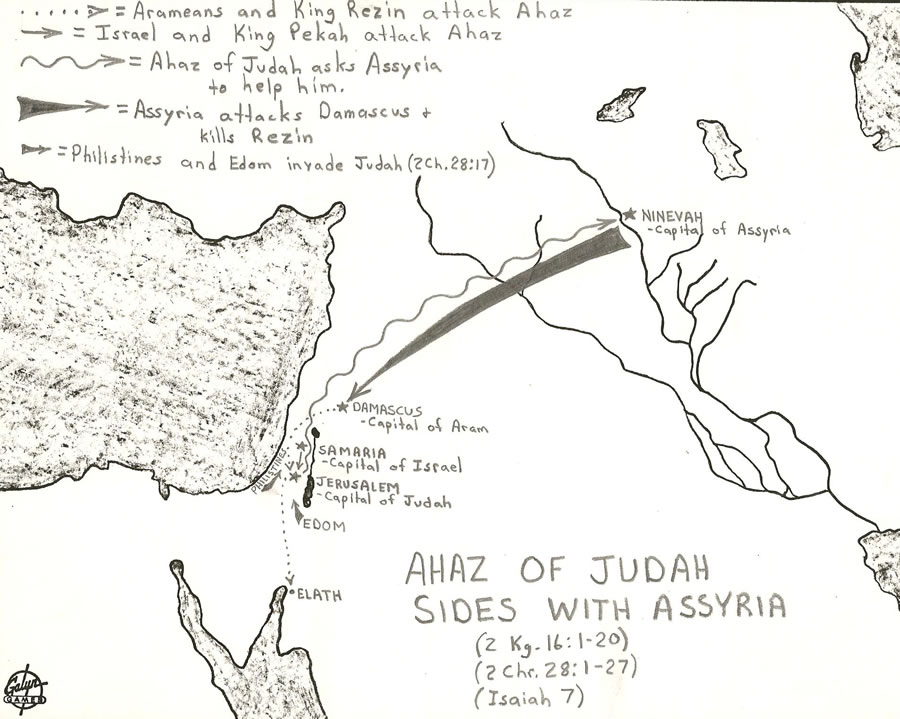 = Arameans and King Rezin attack Ahaz
= Israel and King Pekah attack Ahaz
= Ahaz of Judah asks Assyria
to help him.
= Assyria attacks Damascus +
kills Rezin
= Philistines and Edom invade Judah (2 Ch. 28:17)
NINEVAH
-Capital of Assyria
DAMASCUS
-Capital of Aram
SAMARIA
-Capital of Israel
PHILISTINES
JERUSALEM
-Capital of Judah
EDOM
ELATH
AHAZ OF JUDAH
SIDES WITH ASSYRIA
(2 Kg. 16:1-20)
(2 Chr. 28:1-27)
(Isaiah 7)
Galyn
GAMES